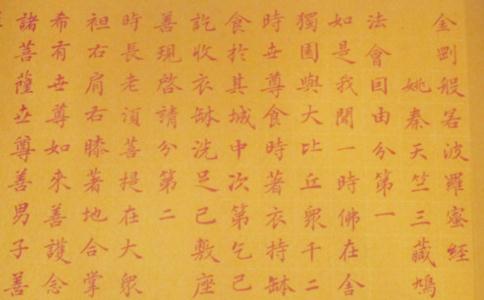 金剛般若波羅蜜經
姚秦天竺三藏鳩
法會因由分第一
如是我聞一時佛在舍
獨園與大比丘眾千二
時世尊食時著衣持缽
食於其城中次第乞已
訖收衣缽洗足已敷座
善現啓請分第二
時長老須菩提在大眾
袒右肩右膝著地合掌
希有世尊如來善護念
諸菩薩世尊善男子善